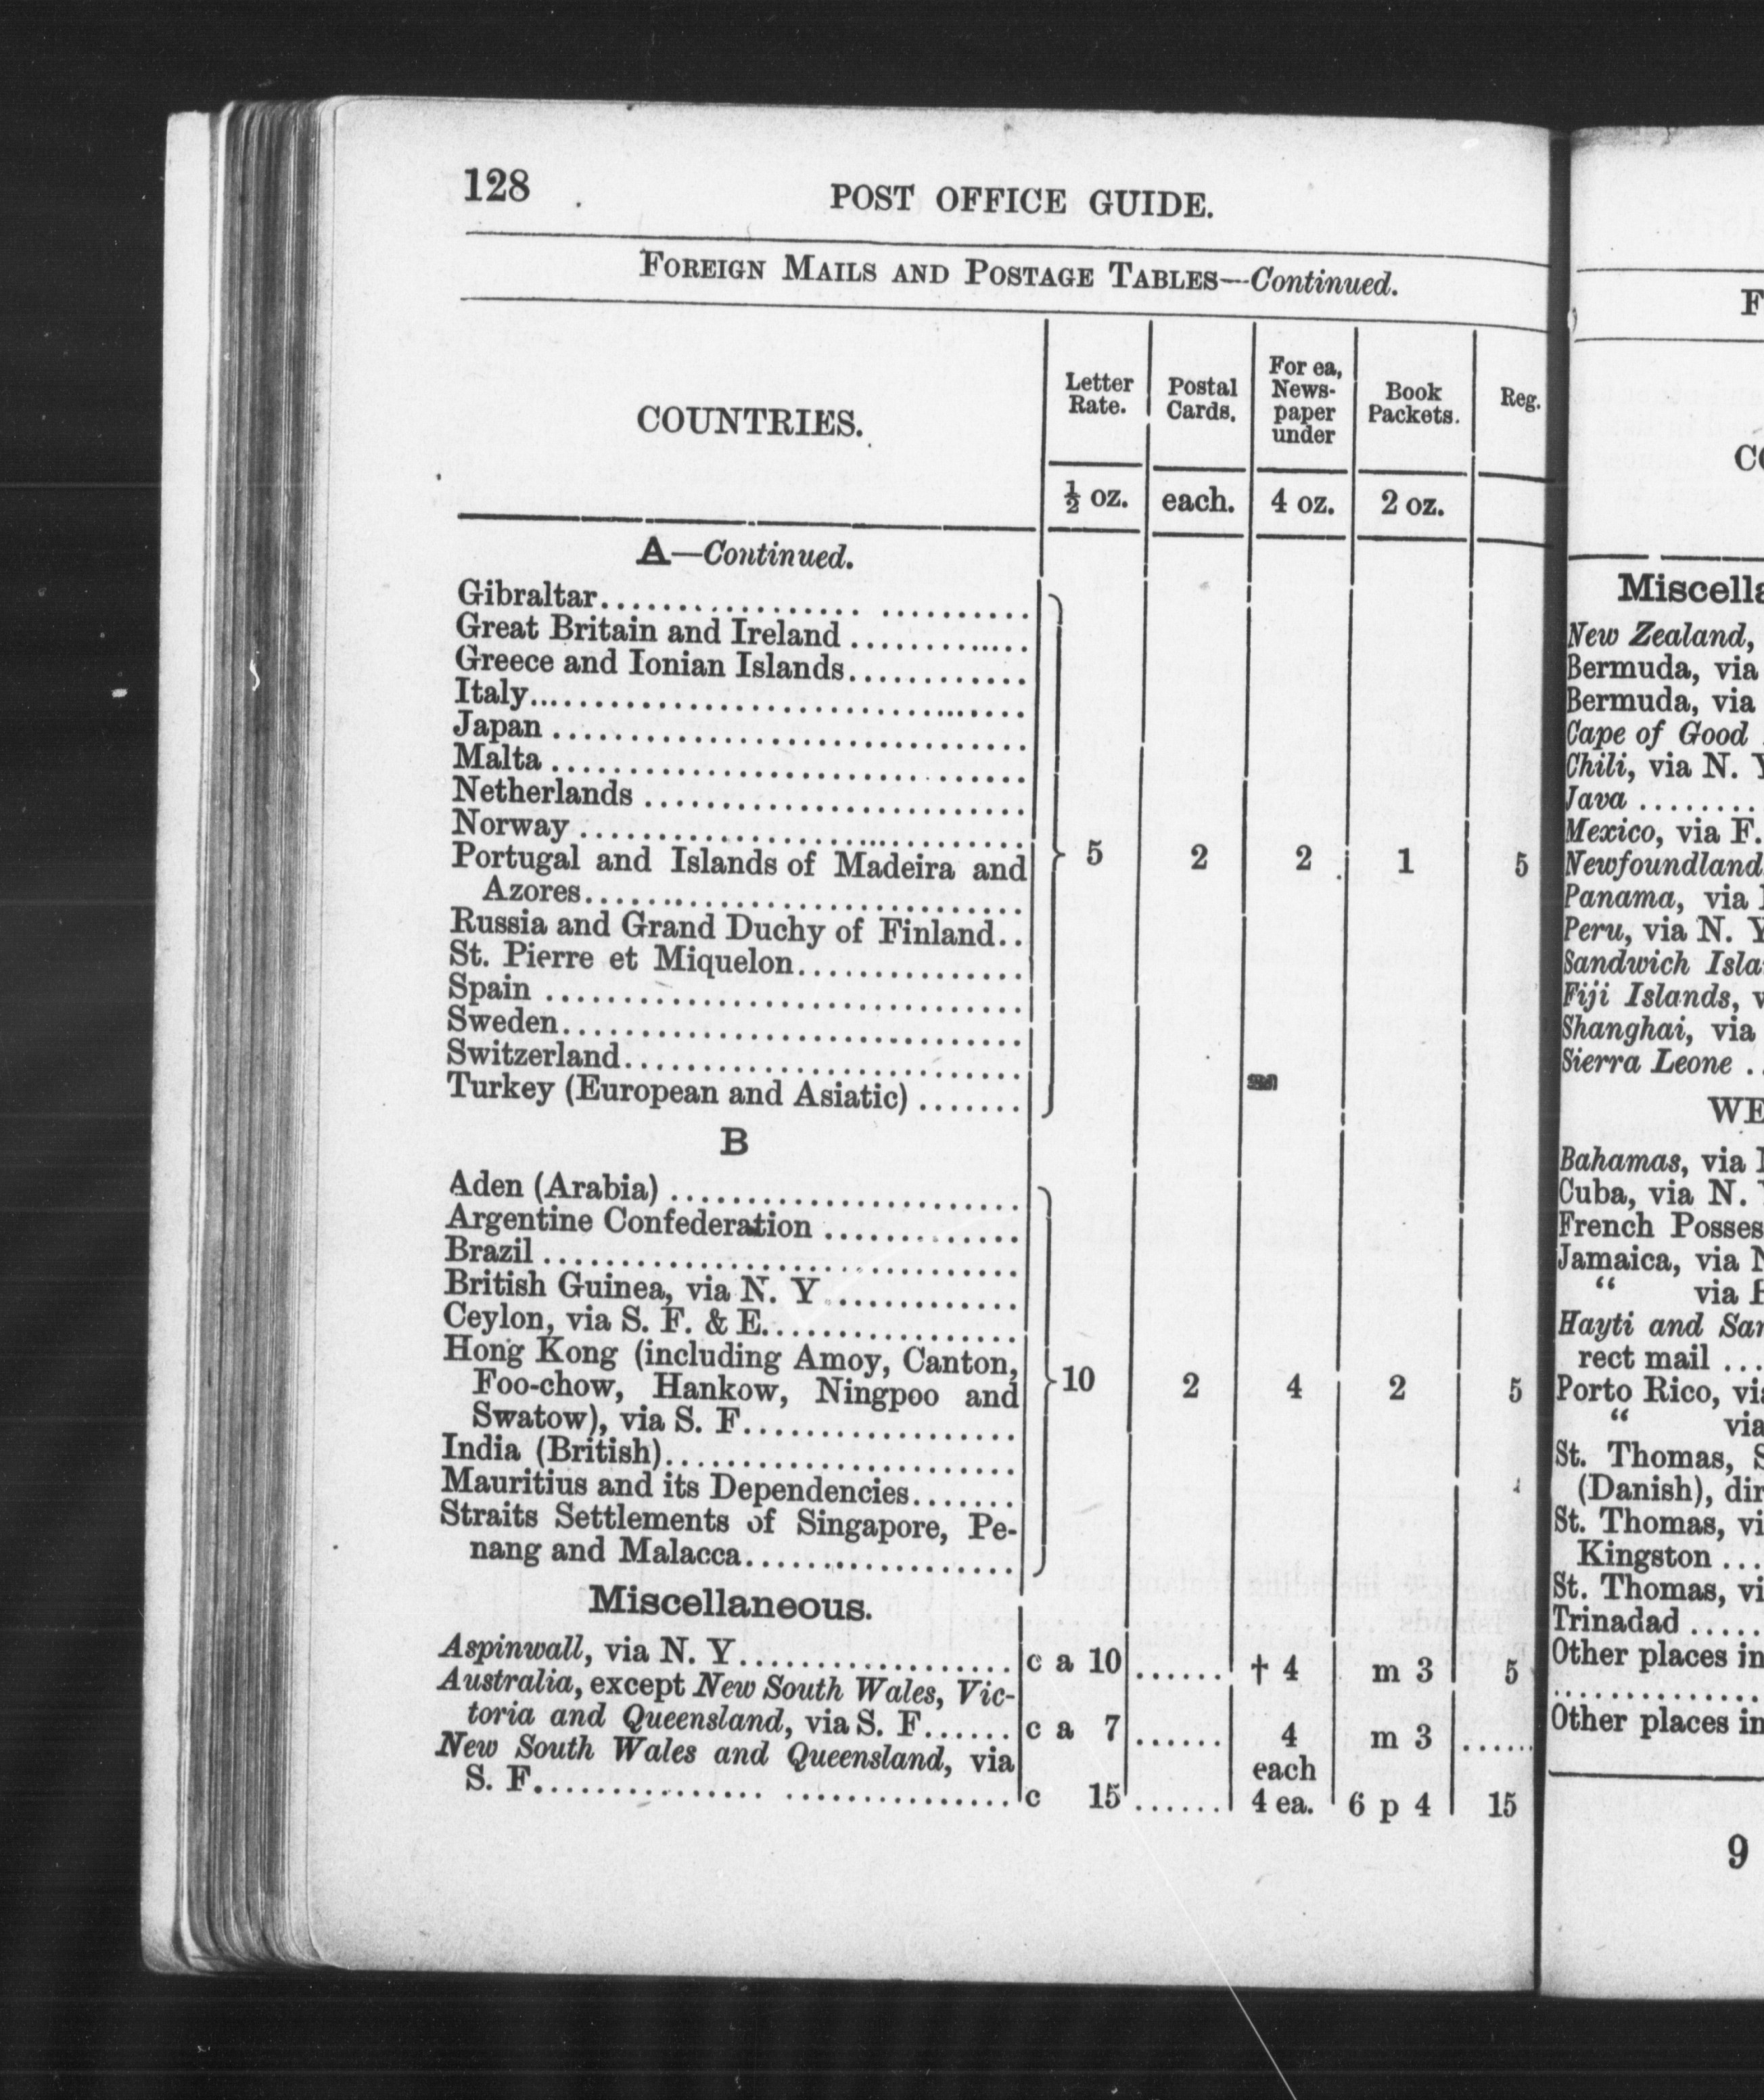 128
POST OFFICE GUIDE.
FOREIGN MAILS AND POSTAGE TABLES—Continued.
COUNTRIES.
Letter Rate.
Postal Cards.
For ea, News-paper under
Book Packets.
Reg.
½ oz. each. 4 oz. 2 oz.
A—Continued.
Gibraltar
Great Britain and Ireland
Greece and Ionian Islands
Italy
Japan
Malta
Netherlands
Norway
5 2 2 1 5
Portugal and Islands of Madeira and
Azores
Russia and Grand Duchy of Finland
St. Pierre et Miquelon
Spain
Sweden
Switzerland
Turkey (European and Asiatic)
B
Aden (Arabia)
Argentine Confederation
Brazil
British Guinea, via N. Y
Ceylon, via S. F. & E.
Hong Kong (including Amoy, Canton,
Foo-chow, Hankow, Ningpoo and
10 2 4 2 5
Swatow), via S. F.
India (British)
Mauritius and its Dependencies
Straits Settlements of Singapore, Pe-
nang and Malacca
Miscellaneous.
Aspinwall, via N. Y. c a 10 ...... † 4 m 3 5
Australia, except New South Wales, Vic-
toria and Queensland, via S. F. c a 7 ...... 4 each m 3 ......
New South Wales and Queensland, via
S. F. c 15 ...... 4 ea. 6 p 4 15
F
CO
Miscella
New Zealand,
Bermuda, via
Bermuda, via
Cape of Good
Chili, via N. Y
Java
Mexico, via F.
Newfoundland
Panama, via
Peru, via N. Y
Sandwich Isla
Fiji Islands, v
Shanghai, via
Sierra Leone
WE
Bahamas, via
Cuba, via N.
French Posses
Jamaica, via N
“ via
Hayti and Sa
rect mail
Porto Rico, via
“ via
St. Thomas, S
(Danish), dir
St. Thomas, vi
Kingston
St. Thomas, vi
Trinadad
Other places in
Other places in
9